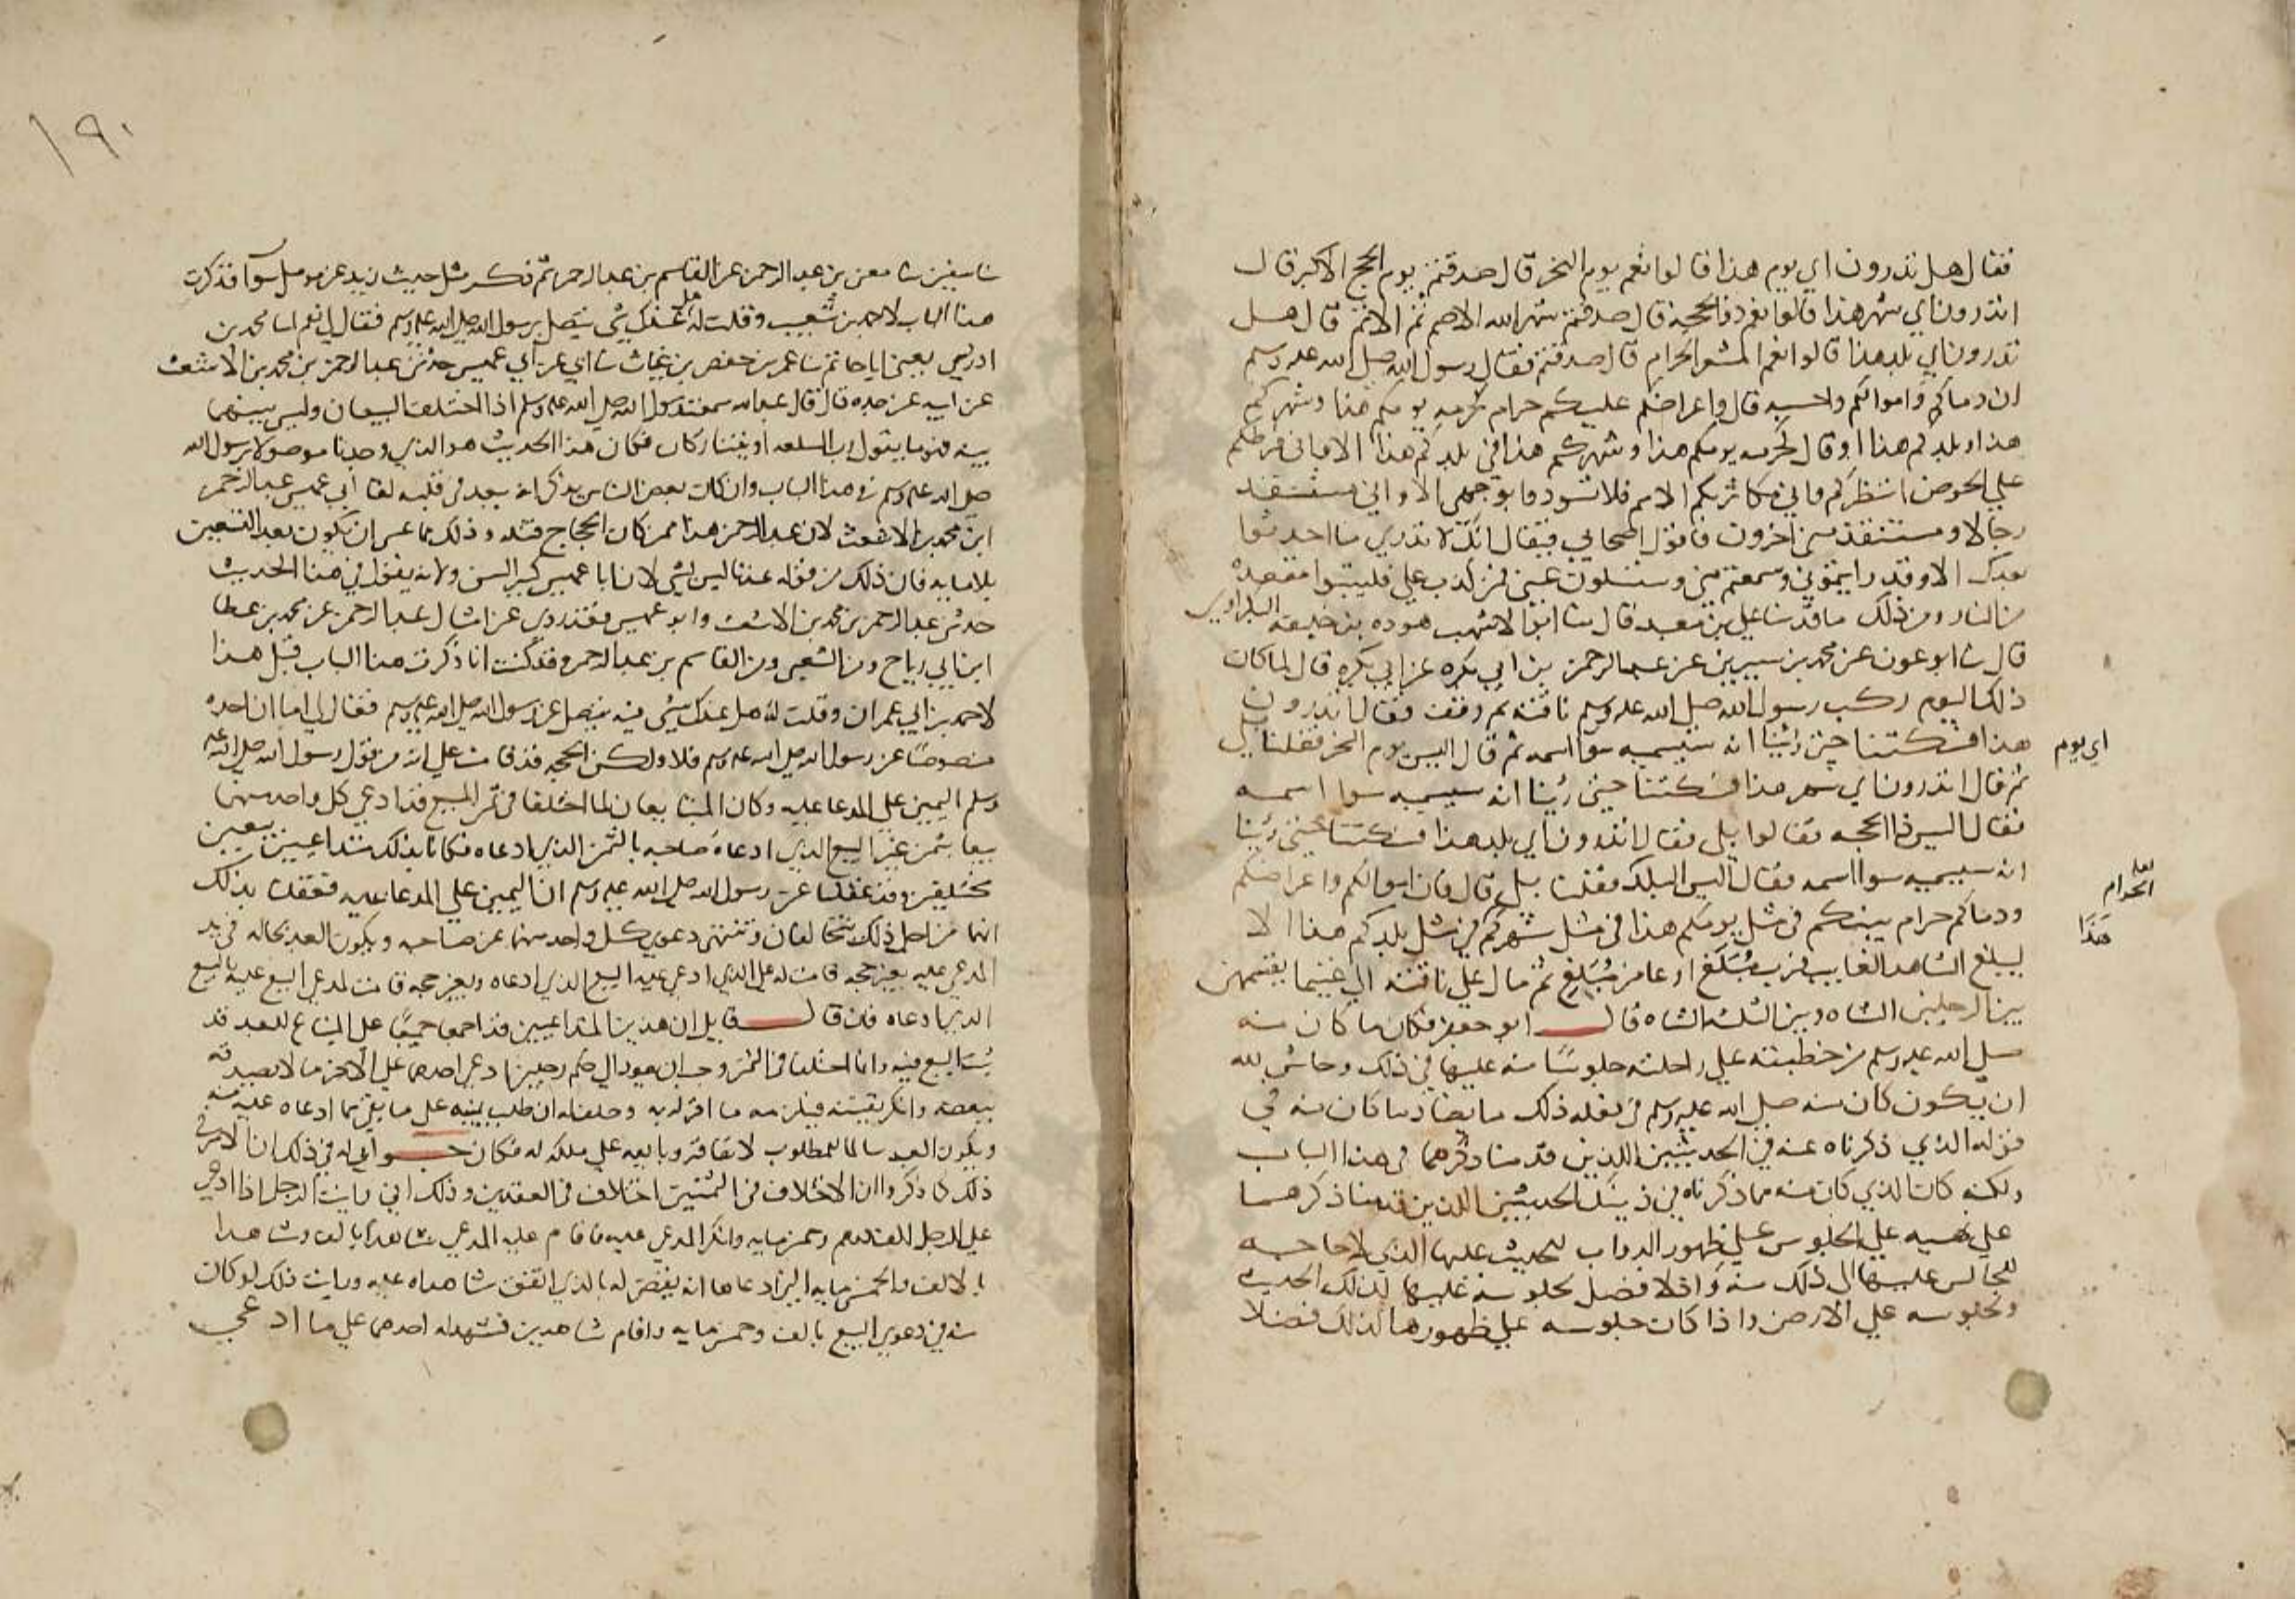 فقال هل تدرون اي يوم هذا قالوا نعم يوم النحر قال صدقتم يوم الحج الاكبر قال
اتدرون اي شهر هذا قالوا نعم ذو الحجة قال صدقتم شهر الله الاصم ثم الاثم قال هل
تدرون اي بلد هذا قالوا نعم المشعر الحرام قال صدقتم فقال رسول الله صلى الله عليه وسلم
ان دماكم واموالكم واحسبه قال واعراضكم عليكم حرام كحرمة يومكم هذا وشهركم
هذا وبلدكم هذا او قال كحرمة يومكم هذا وشهركم هذا في بلدكم هذا الا واني فرطكم
علي الحوض انتظركم واني مكاثر بكم الامم فلا تسودوا بوجهي الا واني مستنقذ
رجالا ومستنقذ مني اخرون فاقول اصحابي فيقال انك لا تدري ما احدثوا
بعدك الا وقد رايتموني وسمعتم مني وستسلون عني فمن كذب علي فليتبوا مقعده
من النار ومن ذلك ما قد نا علي بن معبد قال نا ابو الاشهب هوده بن خليفه البكراوي
قال نا ابو عون عن محمد بن سيرين عن عبد الرحمن بن ابي بكره عن ابي بكره قال لما كان
ذلك اليوم ركب رسول الله صلى الله عليه وسلم ناقته ثم وقف فقال اتدرون
اي يوم
هذا فسكتنا حتى راينا انه سيسميه سوا اسمه ثم قال اليس يوم النحر فقلنا بلي
ثم قال اتدرون اي شهر هذا فسكتنا حتى رينا انه سيسميه سوا اسمه
فقال اليس ذا الحجه فقالوا بلي فقال اتدرون اي بلد هذا فسكتنا حتى رينا
انه سيسميه سوا اسمه فقال اليس البلد فقلنا بلي قال فان اموالكم واعراضكم
لعله
الحرام
ودماكم حرام بينكم في مثل يومكم هذا في مثل شهركم في مثل بلدكم هذا الا
هذا
ليبلغ الشاهد الغايب فرب مبلغ اوعا من مبلغ ثم مال علي ناقته الي غنيمات يقتسمهن
بين الرجلين الشاه وبين الثلثه الشاه قال ابو جعفر فكان ما كان منه
صلى الله عليه وسلم من خطبته علي راحلته جلوسا منه عليها في ذلك وحاش لله
ان يكون كان منه صلى الله عليه وسلم في فعله ذلك ما يضاد ما كان منه في
قوله الذي ذكرناه عنه في الحديثين اللذين قدمنا ذكرهما في هذا الباب
ولكنه كان الذي كان منه مما ذكرناه في ذينك الحديثين اللذين قدمنا ذكرهما
علي نهيه علي الجلوس علي ظهور الدواب للحديث عليها الذي لا حاجه
للجالس عليها الي ذلك منه واذ لا فضل لجلوسه عليها لذلك الحديث
ولجلوسه علي الارض واذا كان جلوسه علي ظهورها لذلك فضلا
١٩٠
نا سفين نا معن بن عبد الرحمن عن القاسم بن عبد الرحمن ثم ذكر مثل حديث زيد عن مومل سوا فذكرت
هذا الباب لاحمد بن شعيب وقلت له هل عندك شي يتصل برسول الله صلى الله عليه وسلم فقال لي نعم انا محمد بن
ادريس يعني ابا حاتم نا عمر بن حفص بن غياث نا ابي عن ابي عميس حدثني عبد الرحمن بن محمد بن الاشعث
عن ابيه عن جده قال قال عبد الله سمعت رسول الله صلى الله عليه وسلم اذا اختلف البيعان وليس بينهما
بينه فهو ما يقول رب السلعه او يتتاركان فكان هذا الحديث هو الذي وجدنا موصولا برسول الله
صلى الله عليه وسلم في هذا الباب وان كان بعض الناس يذكر انه يبعد في قلبه لقا ابي عميس عبد الرحمن
ابن محمد بن الاشعث لان عبد الرحمن هذا ممن كان الحجاج قتله وذلك مما عسي ان يكون بعد التسعين
فان ذلك من قوله عندنا ليس بشي لان ابا عميس كبير السن ولانه يقول في هذا الحديث
حدثني عبد الرحمن بن محمد بن الاشعث وابو عميس فقد روي عن امثال عبد الرحمن عن محمد بن عطا
ابن ابي رباح وعن الشعبي وعن القاسم بن عبد الرحمن وقد كنت انا ذكرت هذا الباب قبل هذا
لاحمد بن ابي عمران وقلت له هل عندك شي فيه يتصل عن رسول الله صلى الله عليه وسلم فقال لي اما ان اجده
منصوصا عن رسول الله صلى الله عليه وسلم فلا ولكن الحجه قد قامت علي انه من قول رسول الله صلى الله عليه
وسلم اليمين علي المدعا عليه وكان المتبايعان لما اختلفا في ثمن المبيع قد ادعي كل واحد منهما
بيعا بثمن غير البيع الذي ادعاه صاحبه بالثمن الذي ادعاه فكانا بذلك متداعيين بيعين
مختلفين وقد عقلنا عن رسول الله صلى الله عليه وسلم ان اليمين علي المدعا عليه فعقلنا بذلك
انهما من اجل ذلك يتحالفان وتنتفي دعوي كل واحد منهما عن صاحبه ويكون العبد بحاله في يد
المدعي عليه بغير حجه قامت له علي الذي ادعي عليه البيع الذي ادعاه وبغير حجه قامت لمدعي البيع عليه بالبيع
الذي ادعاه فان قال قايل ان هذين المتداعيين قد اجمعا جميعا علي المتاع للعبد قد
بيع فيه وانما اختلفا في الثمن ادعي احدهما علي الاخر ما لا يصدقه
ببعضه وانكر بقيته فيلزمه ما اقر له به وحلفناه ان طلب يمينه علي ما بقي مما ادعاه عليه منه
ويكون العبد سالما للمطلوب علي ملكه له فكان جوابي له في ذلك ان الامر في
ذلك كما ذكروا ان الاختلاف في الثمنين اختلاف في العقدين وذلك اني رايت الرجل اذا ادعي
علي الرجل الف درهم وخمس مايه وانكر المدعي عليه فاقام عليه المدعي شاهدا بالف وشاهدا
بالالف والخمس مايه التي ادعاها انه يقضى له بالذي اتفق شاهداه عليه ورايت ذلك لو كان
منه في دعوي البيع بالف وخمس مايه واقام شاهدين فشهد له احدهما علي ما ادعي